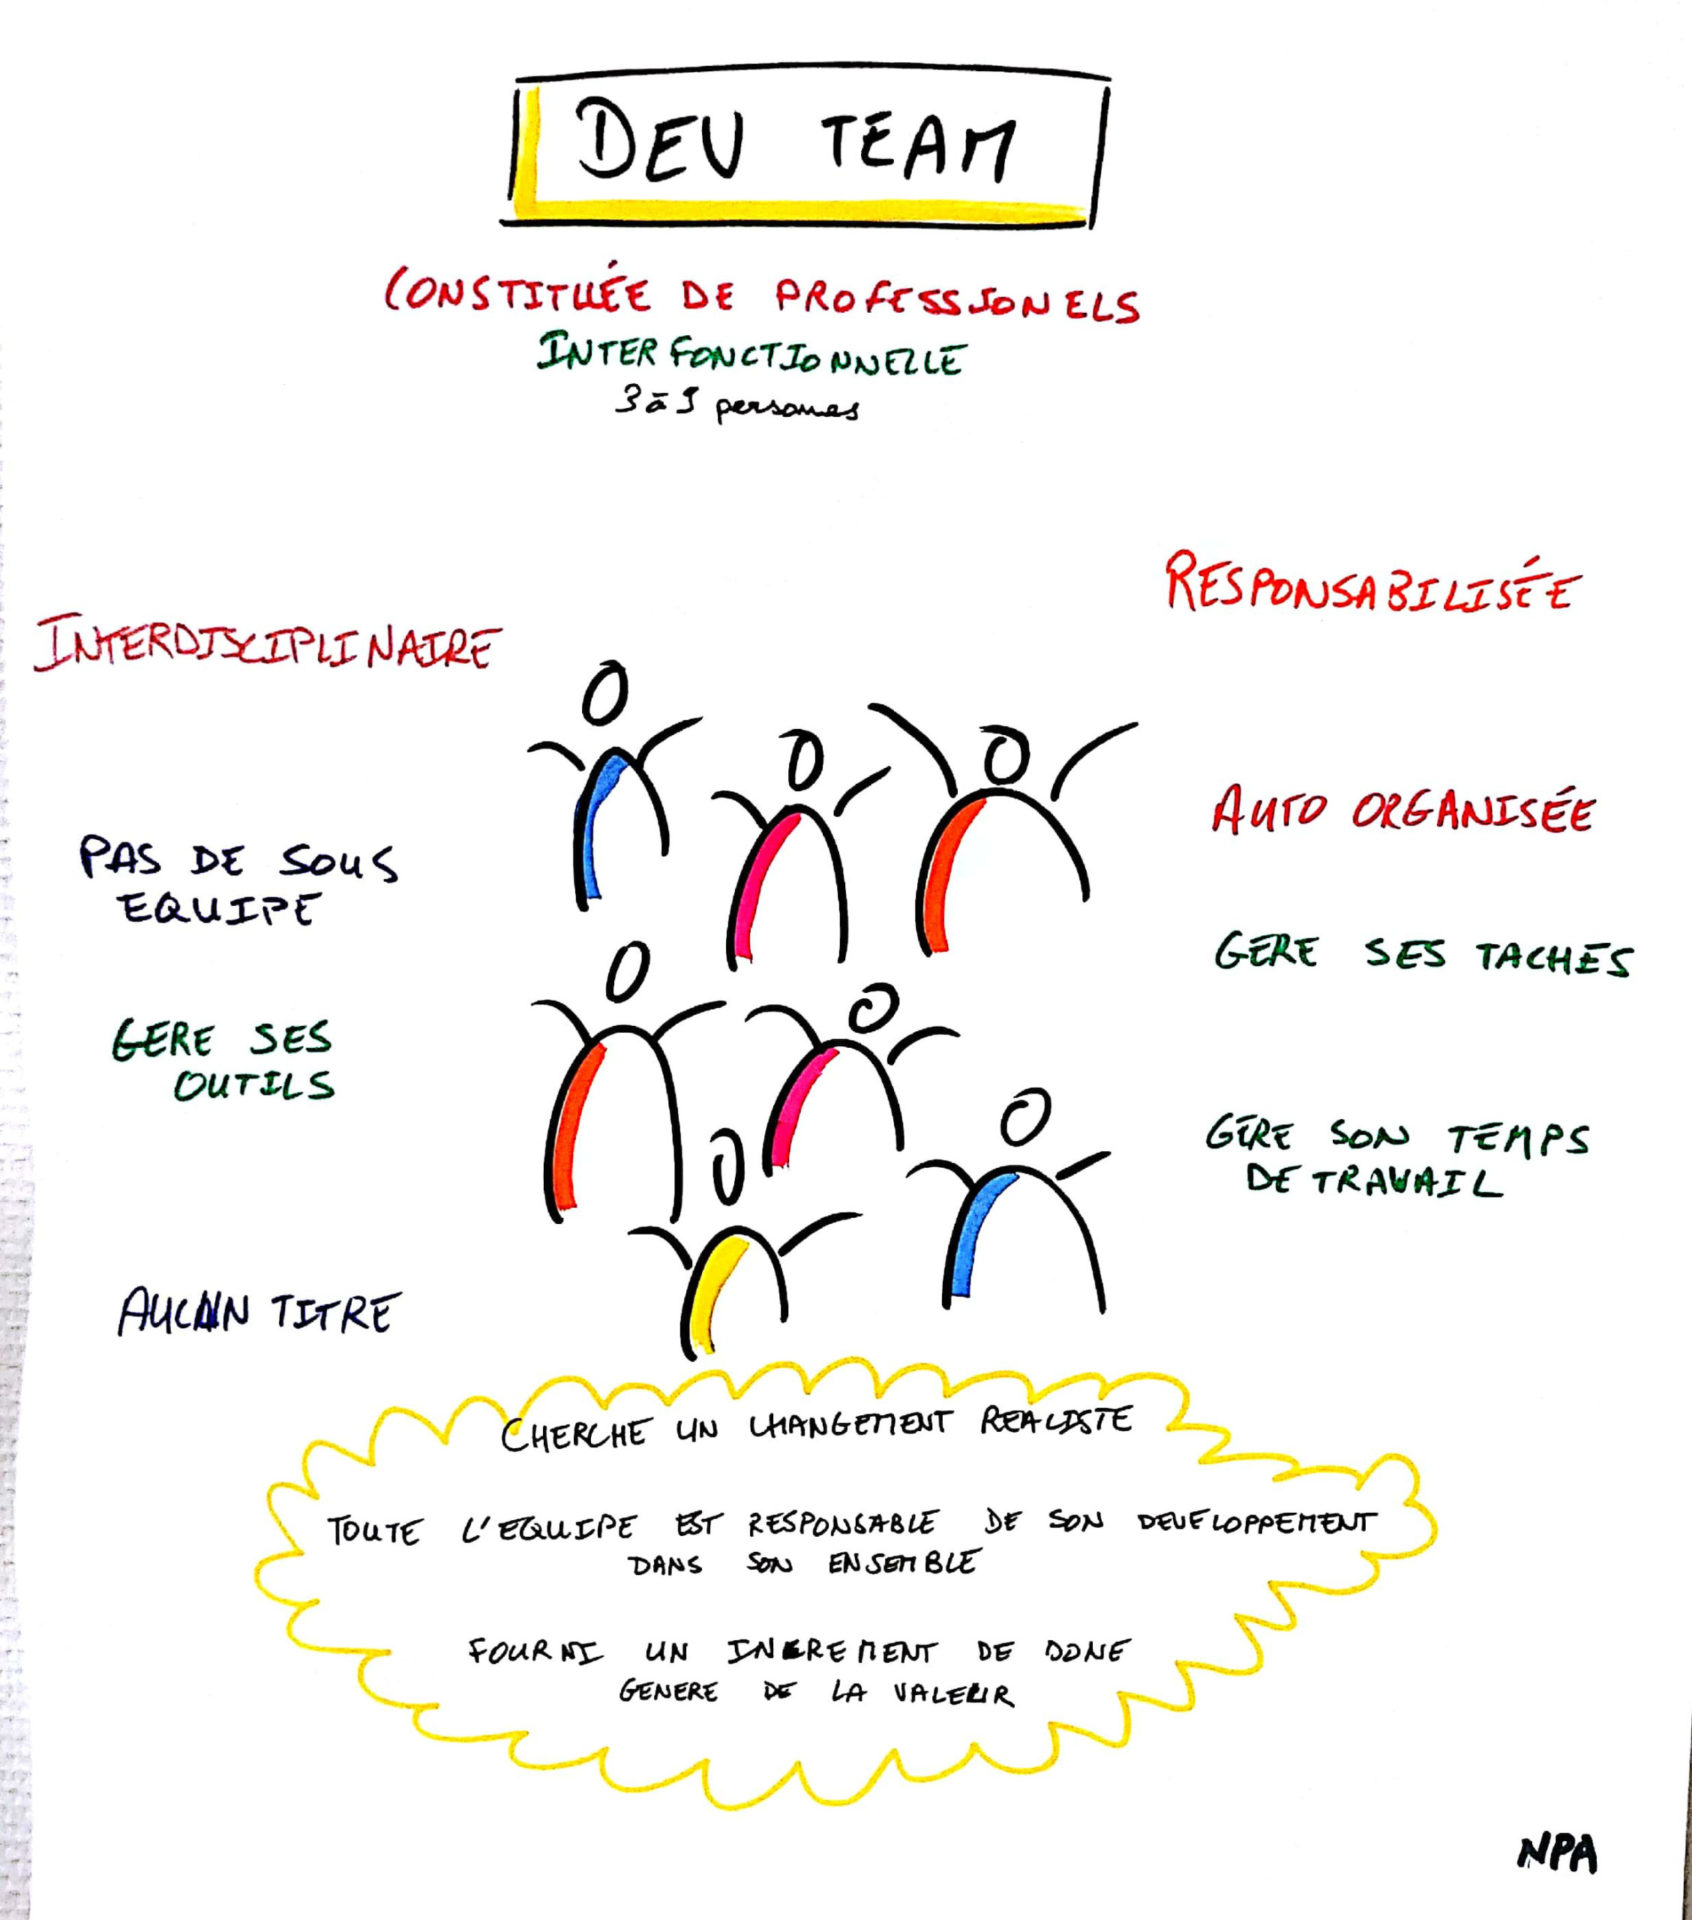 DEV TEAM
CONSTITUÉE DE PROFESSIONELS
INTERFONCTIONNELLE
3 à 9 personnes
RESPONSABILISÉE
INTERDISCIPLINAIRE
AUTO ORGANISÉE
PAS DE SOUS
EQUIPE
GERE SES TACHES
GERE SES
OUTILS
GERE SON TEMPS
DE TRAVAIL
AUCUN TITRE
CHERCHE UN CHANGEMENT REALISTE
TOUTE L'EQUIPE EST RESPONSABLE DE SON DEVELOPPEMENT
DANS SON ENSEMBLE
FOURNI UN INCREMENT DE DONE
GENERE DE LA VALEUR
NPA